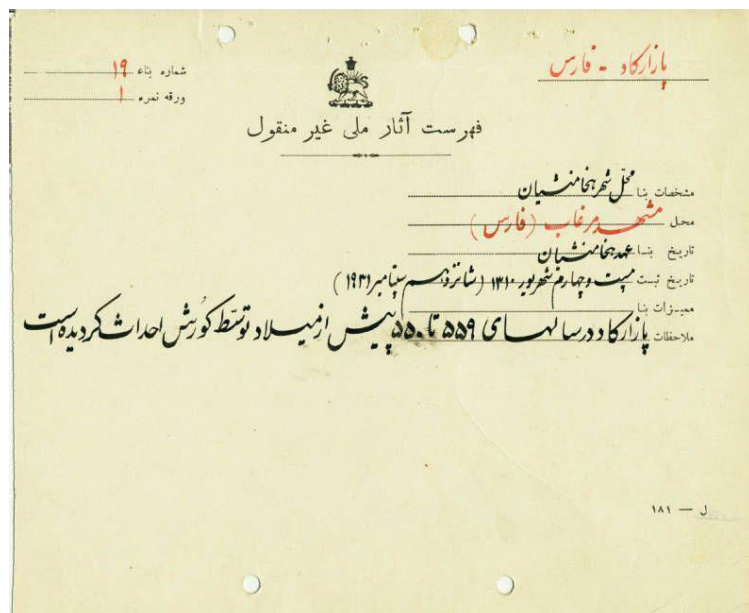 پازارکاد - فارس
شماره بناء ۱۹
ورقه نمره ۱
فهرست آثار ملی غیر منقول
مشخصات بنا محلّ شهر هخامنشیان
محل مشهد مرغاب (فارس)
تاریخ بنا عهد هخامنشیان
تاریخ ثبت بیست و چهارم شهریور ۱۳۱۰ (شانزدهم سپتامبر ۱۹۳۱)
ممیزات بنا
ملاحظات پازارکاد در سالهای ۵۵۹ تا ۵۵۰ پیش از میلاد توسّط کورُش احداث گردیده است
ل — ۱۸۱